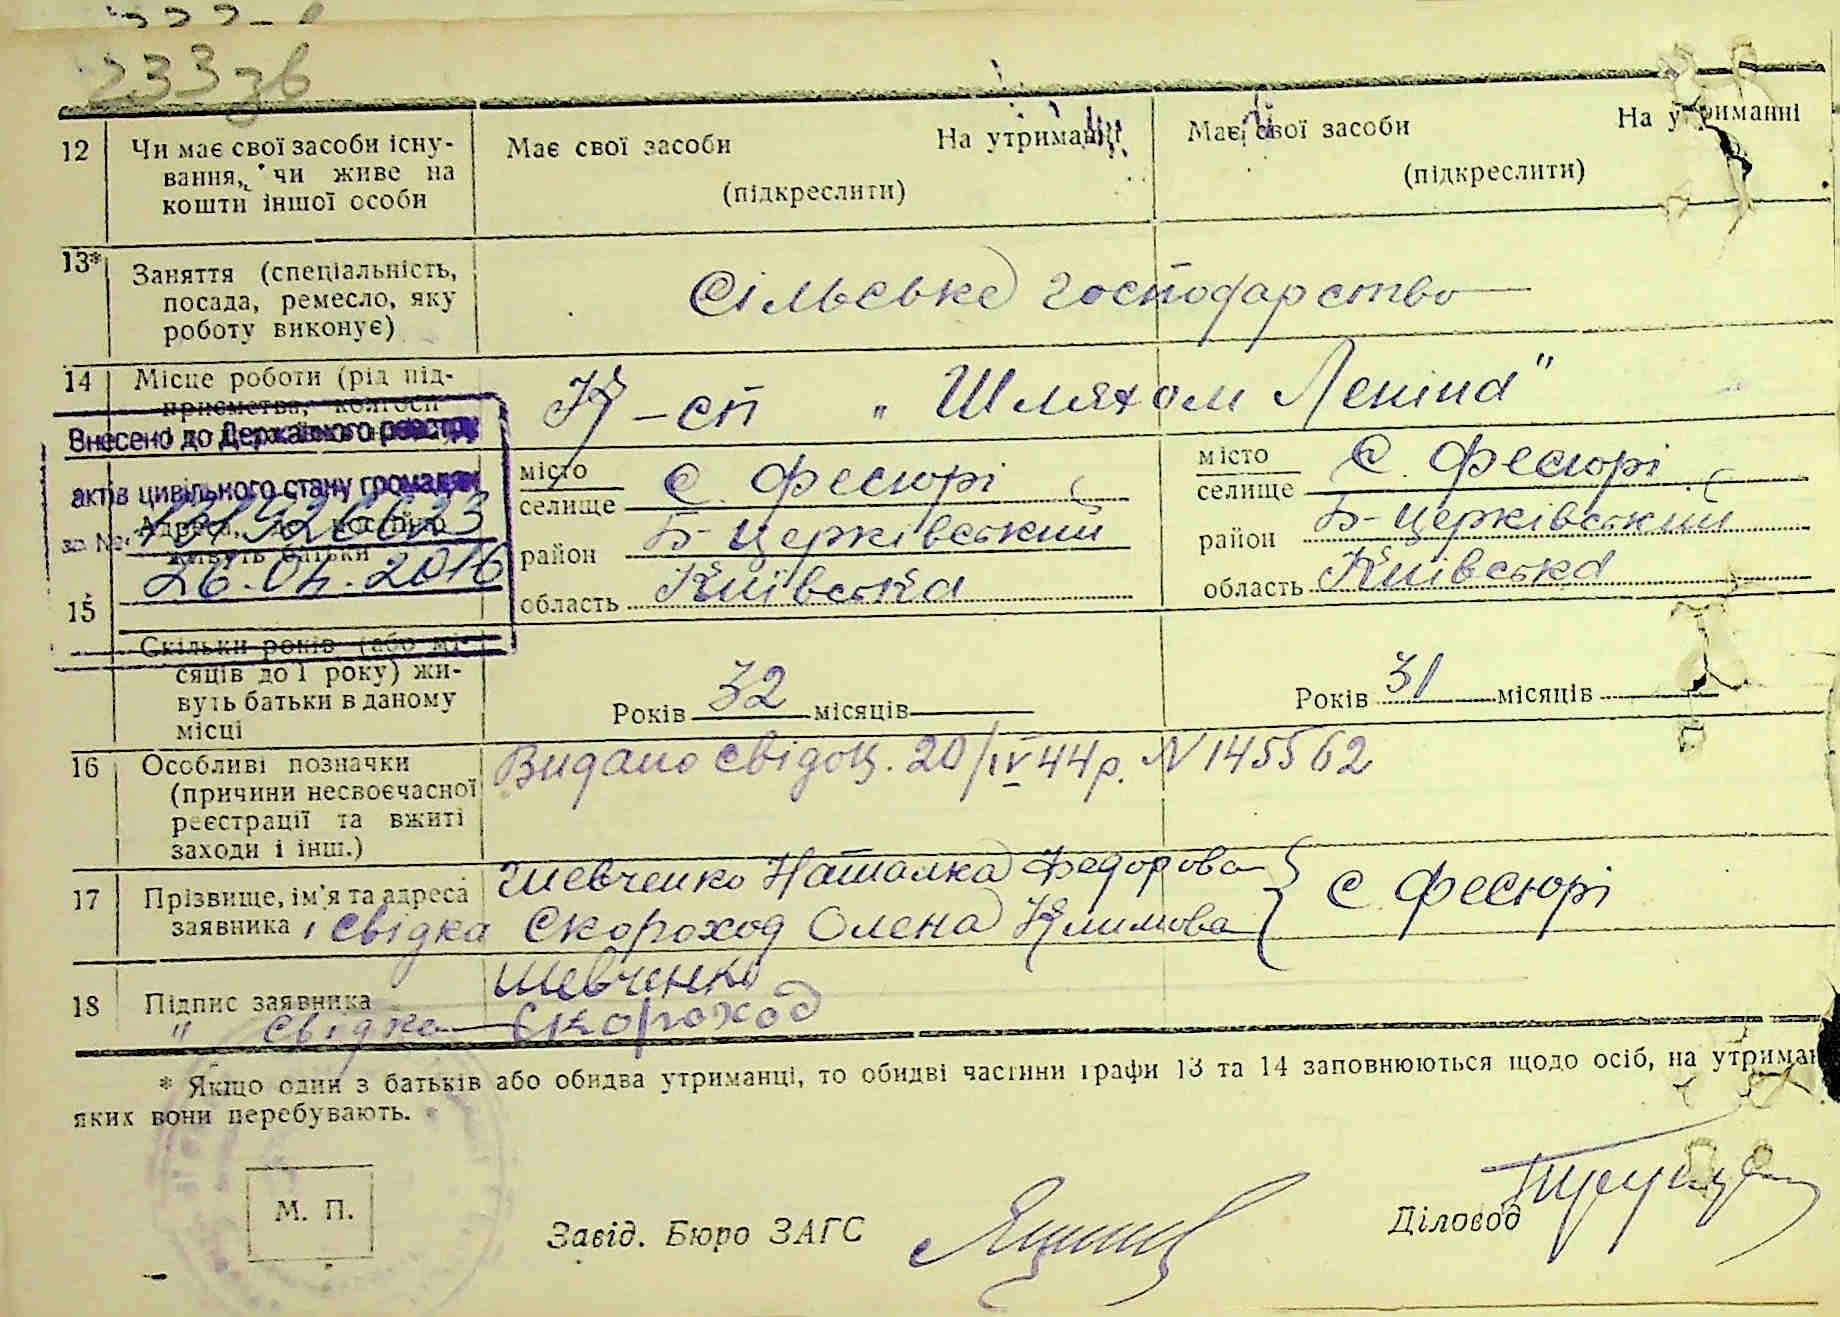 233 зв
12 Чи має свої засоби існу-
вання, чи живе на
кошти іншої особи
Має свої засоби На утриманні
(підкреслити)
Має свої засоби На утриманні
(підкреслити)
13* Заняття (спеціальність,
посада, ремесло, яку
роботу виконує)
Сільське господарство
14 Місце роботи (рід під-
приємства, колгосп
К-сп „Шляхом Леніна"
Внесено до Державного реєстру
актів цивільного стану громадян
за №
26.04.2016
15 Адреса, де постійно
живуть батьки
місто
селище с. Фесюрі
район Б-Церківський
область Київська
місто
селище с. Фесюрі
район Б-Церківський
область Київська
Скільки років (або мі-
сяців до 1 року) жи-
вуть батьки в даному
місці
Років 32 місяців
Років 31 місяців
16 Особливі позначки
(причини несвоєчасної
реєстрації та вжиті
заходи і інш.)
Видано свідоц. 20/IV 44 р. N 145562
17 Прізвище, ім'я та адреса
заявника і свідка
Шевченко Наталка Федорова
Скороход Олена Климова
с. Фесюрі
18 Підпис заявника Шевченко
" свідка Скороход
* Якщо один з батьків або обидва утриманці, то обидві частини графи 13 та 14 заповнюються щодо осіб, на утриман
яких вони перебувають.
М. П.
Завід. Бюро ЗАГС
Діловод